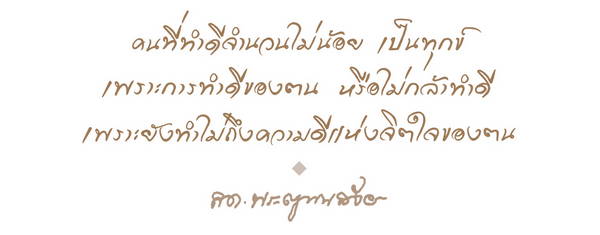 คนที่ทำดีจำนวนไม่น้อย เป็นทุกข์
เพราะการทำดีของตน หรือไม่กล้าทำดี
เพราะยังทำไม่ถึงความดีแห่งจิตใจของตน